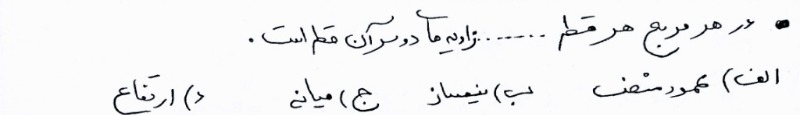 • در هر مربع هر قطر ........ زاویه ها دو سر آن قطر است .
الف) عمود منصف ب) نیمساز ج) میانه د) ارتفاع